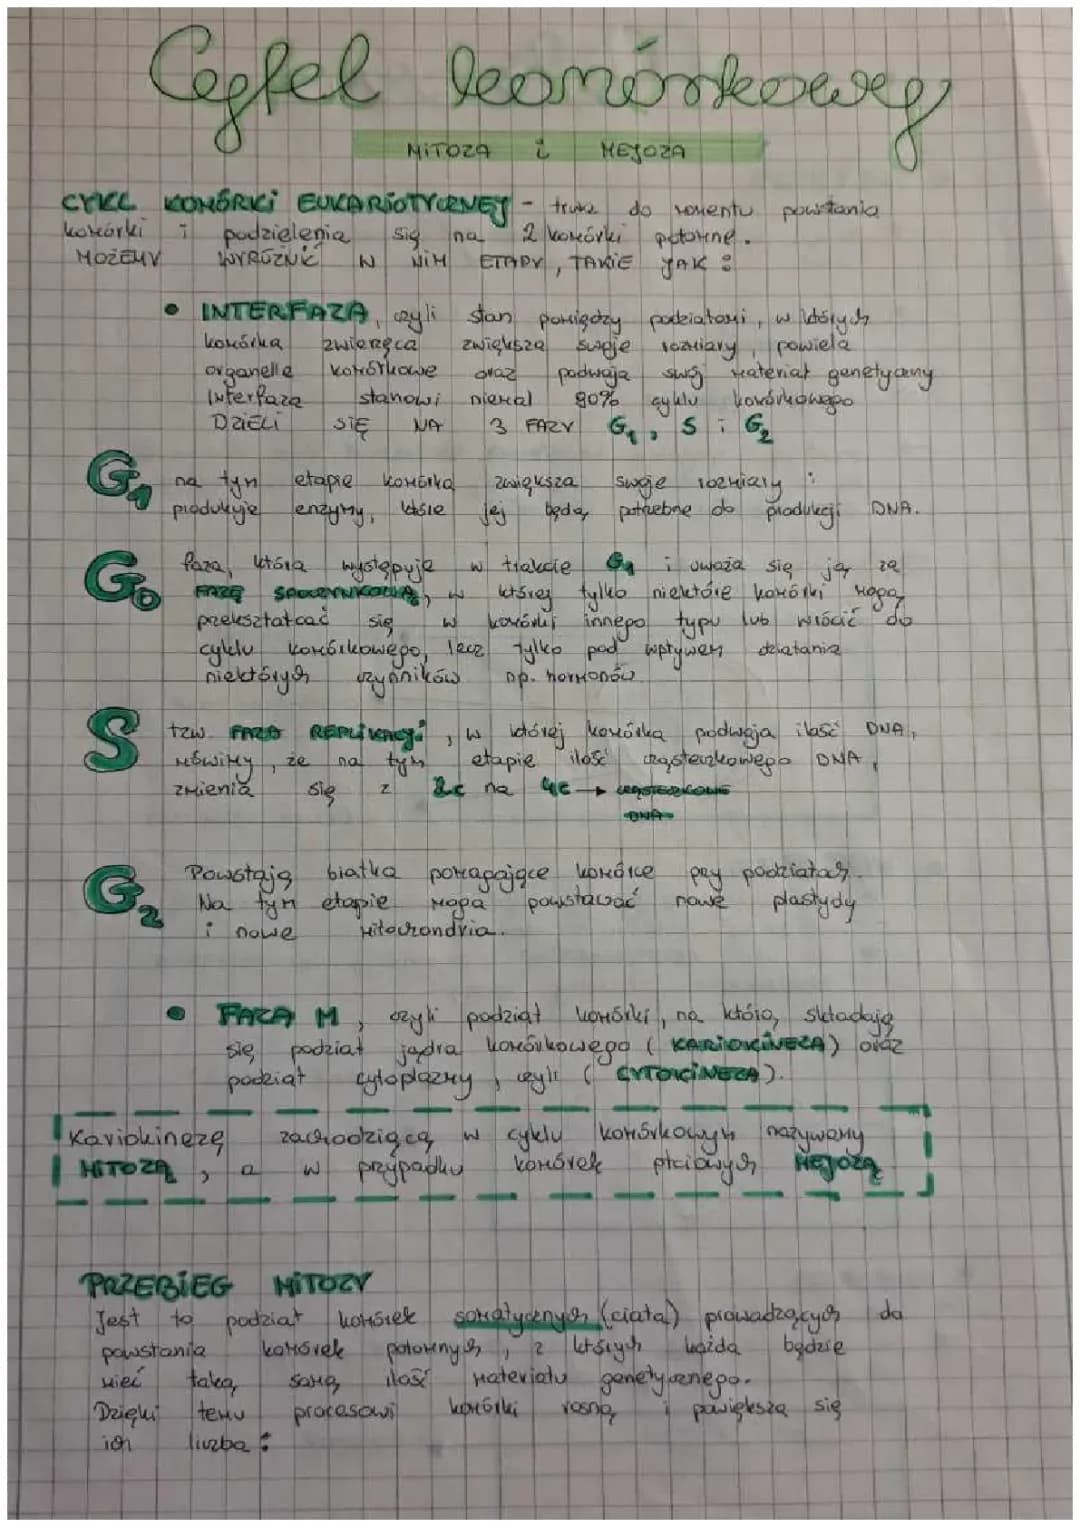 Cykl komórkowy
MITOZA i MEJOZA
CYKL KOMÓRKI EUKARIOTYCZNEJ - trwa do momentu powstania
komórki i podzielenia się na 2 komórki potomne.
MOŻEMY WYRÓŻNIĆ W NIM ETAPY, TAKIE JAK:
• INTERFAZA, czyli stan pomiędzy podziałami, w których
komórka zwierzęca zwiększa swoje rozmiary, powiela
organelle komórkowe oraz podwaja swój materiał genetyczny
Interfaza stanowi niemal 90% cyklu komórkowego
DZIELI SIĘ NA 3 FAZY G₁, S i G₂
G₁ na tym etapie komórka zwiększa swoje rozmiary i
produkuje enzymy, które jej będą potrzebne do produkcji DNA.
G₀ faza, która występuje w trakcie G₁ i uważa się ją za
FAZĘ SPOCZYNKOWĄ, w której tylko niektóre komórki mogą
przekształcać się w komórki innego typu lub wrócić do
cyklu komórkowego, lecz tylko pod wpływem działania
niektórych czynników np. hormonów.
S tzw. FAZA REPLIKACJI, w której komórka podwaja ilość DNA,
mówimy, że na tym etapie ilość cząsteczkowego DNA,
zmienia się z 2c na 4c → CZĄSTECZKOWE
DNA
G₂ Powstają białka pomagające komórce przy podziałach.
Na tym etapie mogą powstawać nowe plastydy
i nowe mitochondria.
• FAZA M, czyli podział komórki, na którą składają
się podział jądra komórkowego (KARIOKINEZA) oraz
podział cytoplazmy, czyli (CYTOKINEZA).
Kariokinezę zachodzącą w cyklu komórkowym nazywamy
MITOZĄ, a w przypadku komórek płciowych MEJOZĄ
PRZEBIEG MITOZY
Jest to podział komórek somatycznych (ciała) prowadzących do
powstania komórek potomnych, z których każda będzie
mieć taką samą ilość materiału genetycznego.
Dzięki temu procesowi komórki rosną i powiększa się
ich liczba: